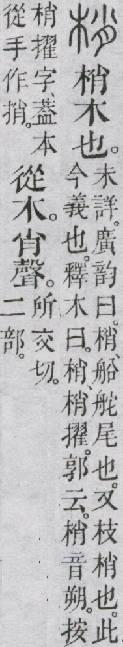 梢 梢木也。未詳。廣韵曰。梢、船舵尾也。又枝梢也。此
今義也。釋木曰。梢、梢擢。郭云。梢音朔。按
梢擢字葢本
從手作捎。從木。肖聲。所交切。
二部。